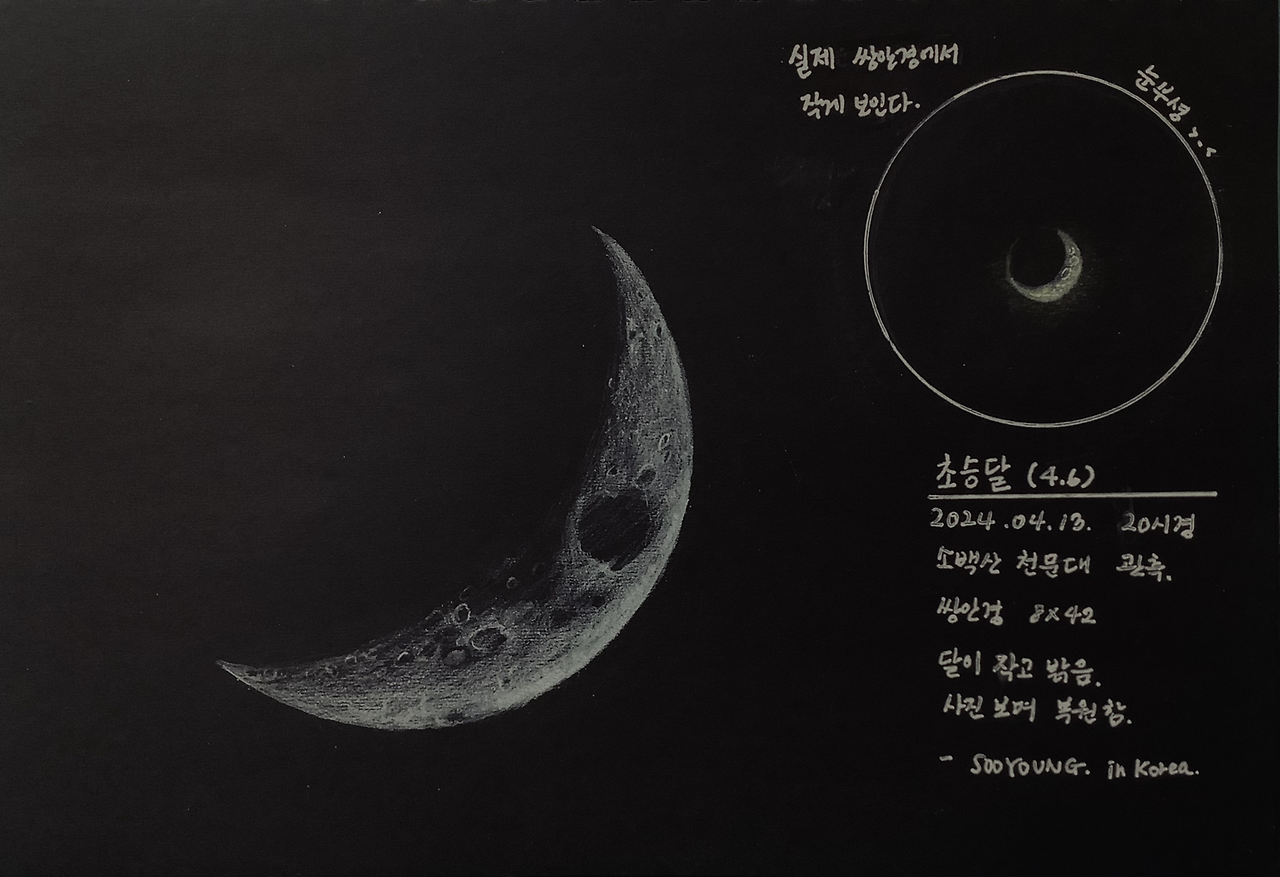 실제 쌍안경에서
작게 보인다.
눈부셩
초승달 (4.6)
2024.04.13. 20시경
소백산 천문대 관측.
쌍안경 8×42
달이 작고 밝음.
사진 보며 복원함.
- SOOYOUNG. in Korea.